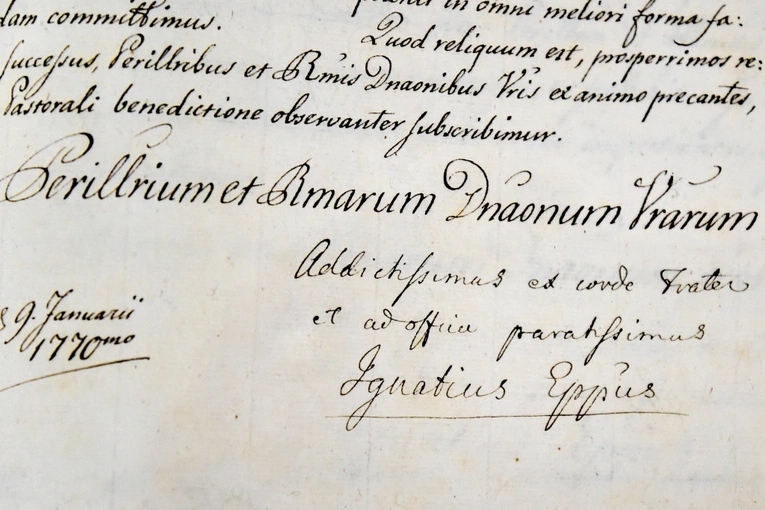 in omni meliori forma fa:
dam committimus.
Quod reliquum est, prosperrimos re:
successus, Perillribus et Rmis Dnaonibus Vris ex animo precantes,
Pastorali benedictione observanter subscribimur.
Perillrium et Rmarum Dnaonum Vrarum
Addictissimus ex corde Frater
et ad officia paratissimus
Ignatius Eppus
9. Januarii
1770mo